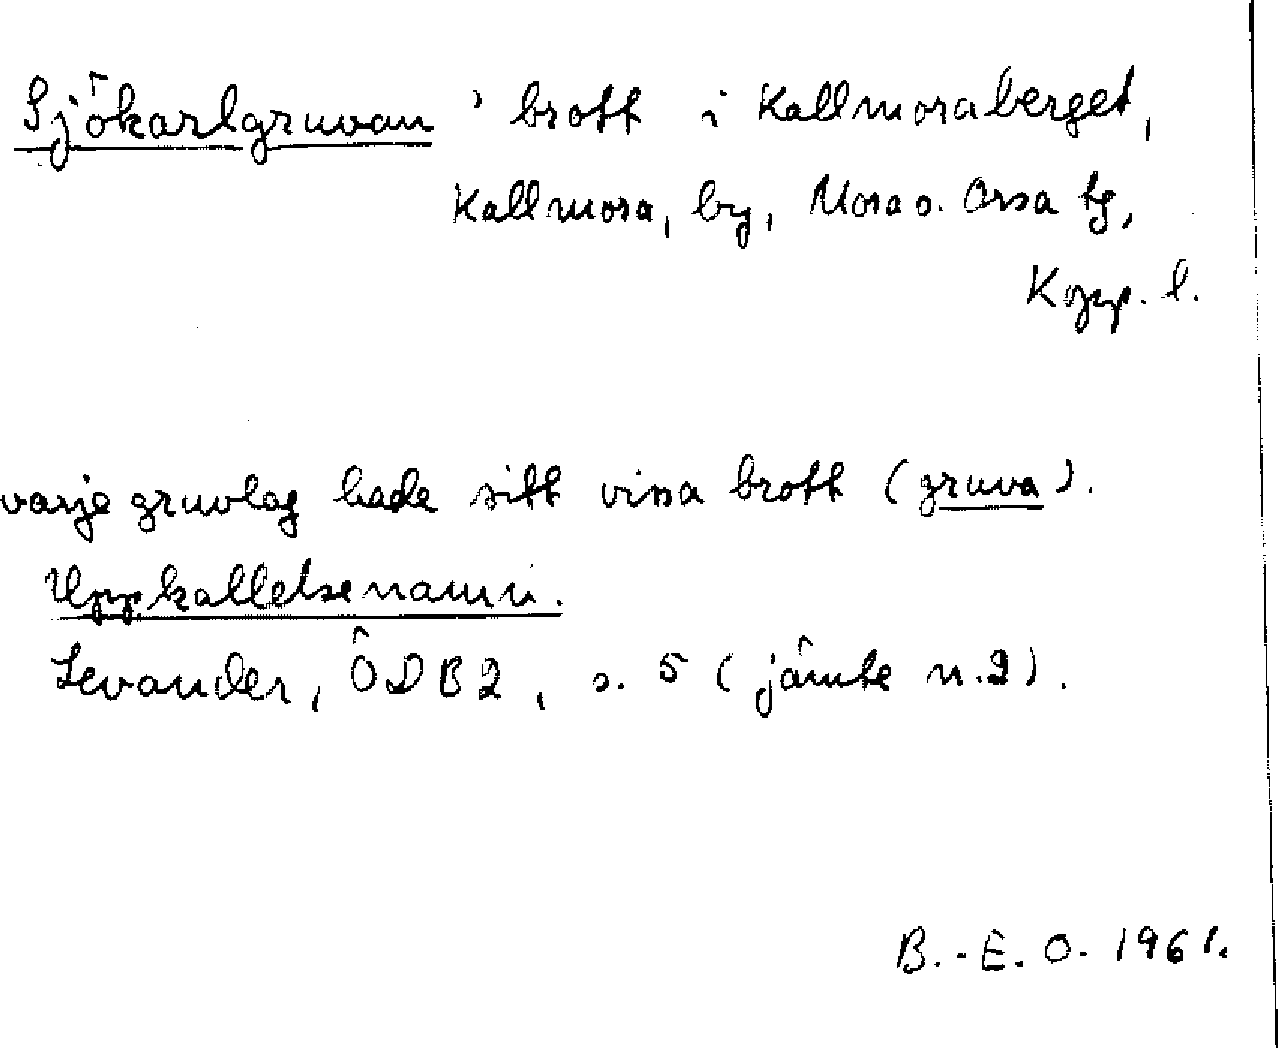 Sjökarlgruvan, brott i Kallmoraberget,
Kallmora, by, Mora o. Orsa tg,
Kopp. l.
varje gruvlag hade sitt vissa brott (gruva).
Uppkallelsenamn.
Levander, ÖDB2, s. 5 (jämte n.2).
B.-E. O. 1961.